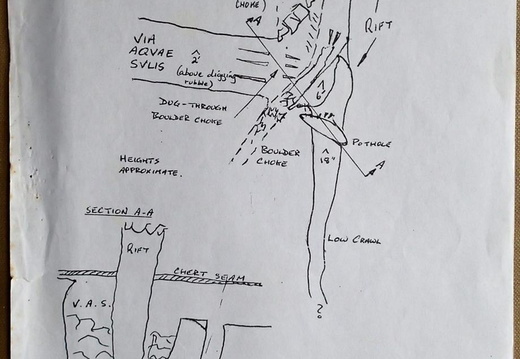 CHOKE)
A
RIFT
VIA
AQVAE
SVLIS
^
2'
(above digging
rubble)
^
6'
DUG-THROUGH
BOULDER CHOKE
POTHOLE
BOULDER
CHOKE
^
18"
A
HEIGHTS
APPROXIMATE.
SECTION A-A
RIFT
LOW CRAWL
CHERT SEAM
V.A.S.
?